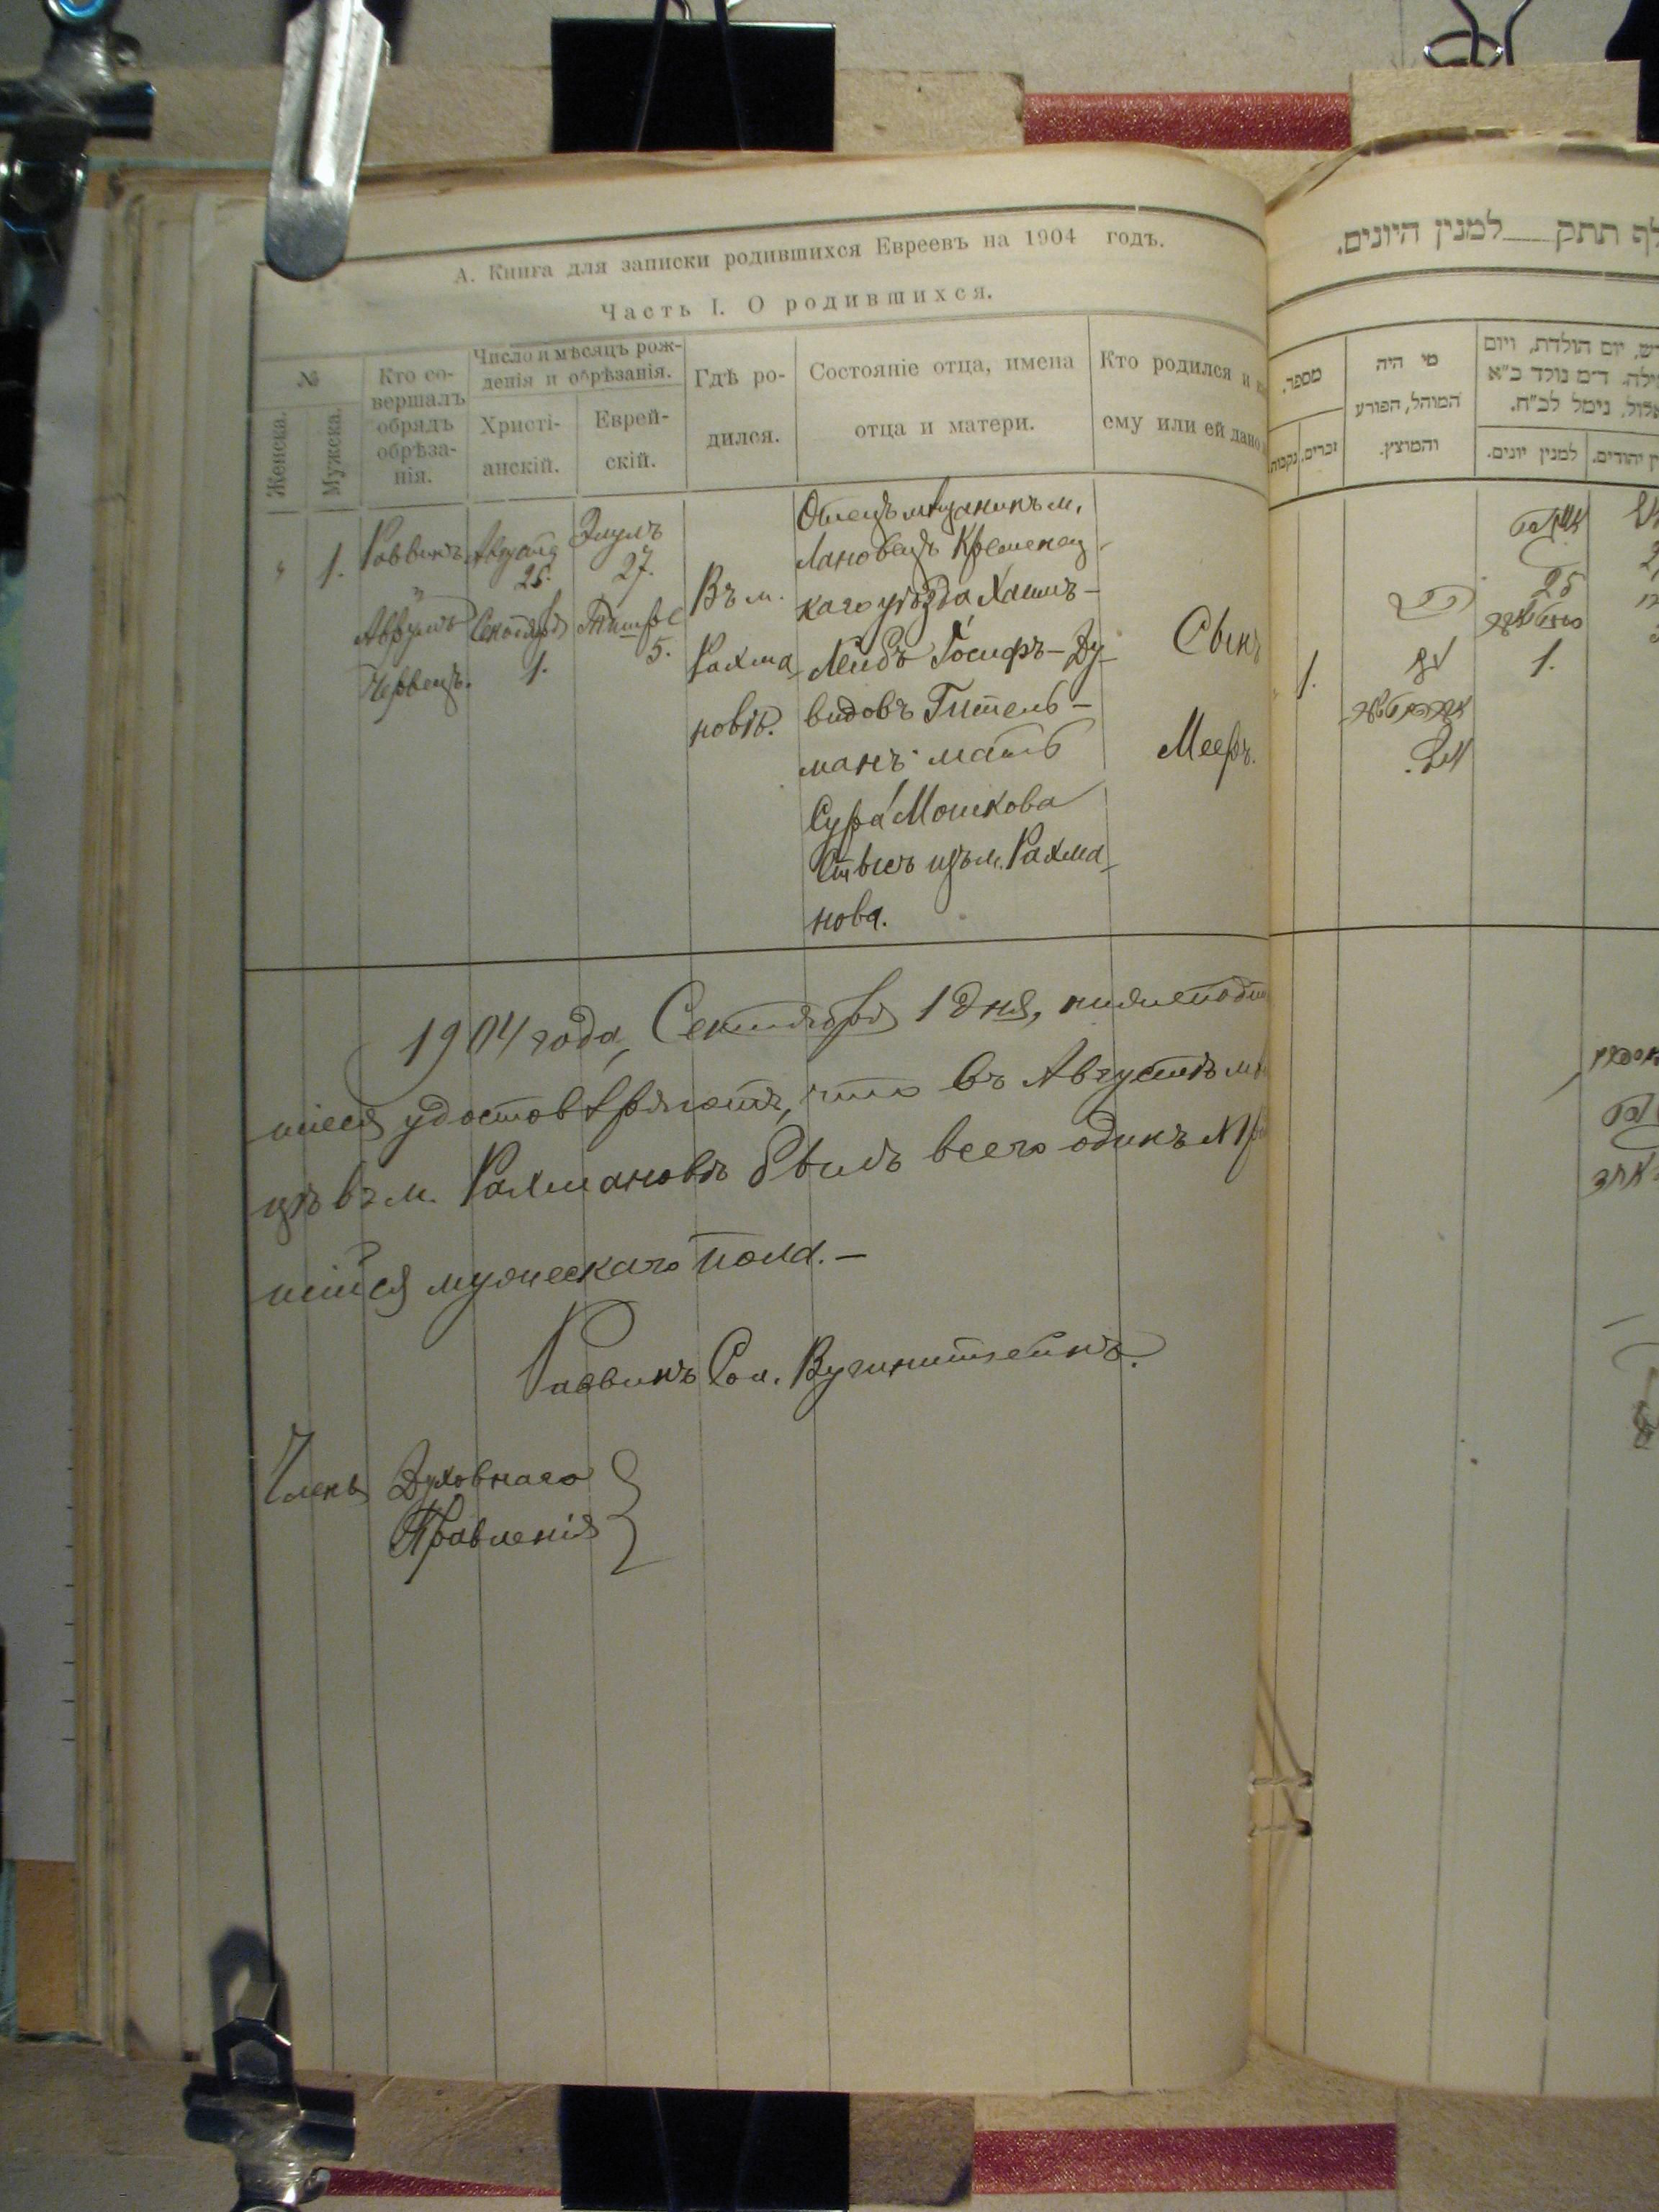 А. Книга для записки родившихся Евреевъ на 1904 годъ.
Часть I. О родившихся.
№
Женска.
Мужска.
Кто со-
вершалъ
обрядъ
обрѣза-
нія.
Число и мѣсяцъ рож-
денія и обрѣзанія.
Христі-
анскій.
Еврей-
скій.
Гдѣ ро-
дился.
Состояніе отца, имена
отца и матери.
Кто родился и
ему или ей дано
„
1.
Раввинъ
Аврумъ
Червецъ.
Августа
25.
Сентября
1.
Элулъ
27.
Тишре
5.
Въ м.
Рахма-
новѣ.
Отецъ мѣщанинъ м.
Лановецъ Кременец-
каго уѣзда Хаимъ-
Лейбъ Іосифъ-Ду-
видовъ Гитель-
манъ мать
Сура Мошкова
изъ м. Рахма-
нова.
Сынъ
Мееръ.
1904 года, Сентября 1 дня, нижеподпи
шіеся удостовѣряютъ, что въ Августѣ мѣ
цѣ въ м. Рахмановѣ былъ всего одинъ № 1 ро
шійся мужескаго пола.—
Раввинъ Сол.
Члены Духовнаго
Правленія
לף תתק למנין היונים.
מספר.
זכרים.
נקבות
מי היה
המוהל, הפורע
והמוצץ.
דש, יום הולדת, ויום
ילה. ד״מ נולד כ״א
אלול, נימל לכ״ח.
למנין יונים.
ן יהודים.
1.
25
1.